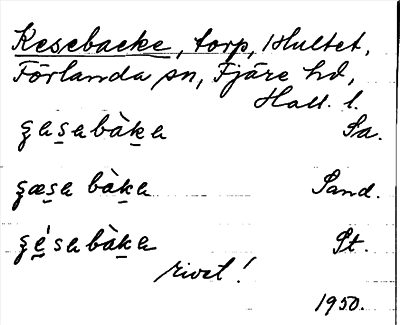 Kesebacke, torp, Hultet,
Förlanda sn, Fjäre hd,
Hall. l.
ʂesebàke Sa.
ʂæse bàke Sand.
ʂésebàke St.
rivet!
1950.